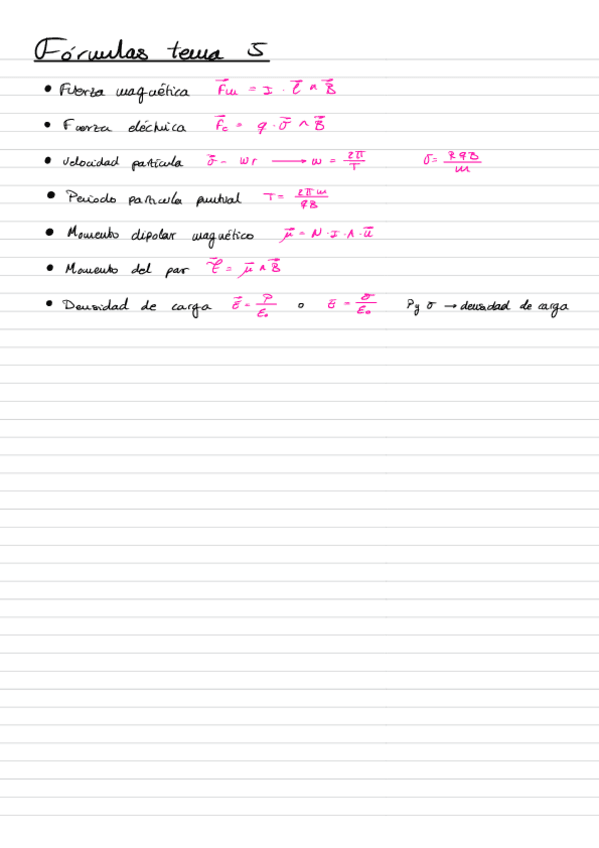 Fórmulas tema 5
• Fuerza magnética F⃗m = I · l⃗ ∧ B⃗
• Fuerza eléctrica F⃗e = q · v⃗ ∧ B⃗
• Velocidad partícula v⃗ = wr → w = 2π/T v = RqB/m
• Periodo partícula puntual T = 2πm/qB
• Momento dipolar magnético μ⃗ = N · I · A · u⃗
• Momento del par τ⃗ = μ⃗ ∧ B⃗
• Densidad de carga E⃗ = ρ/ε₀ o E⃗ = σ/ε₀ ρ y σ → densidad de carga